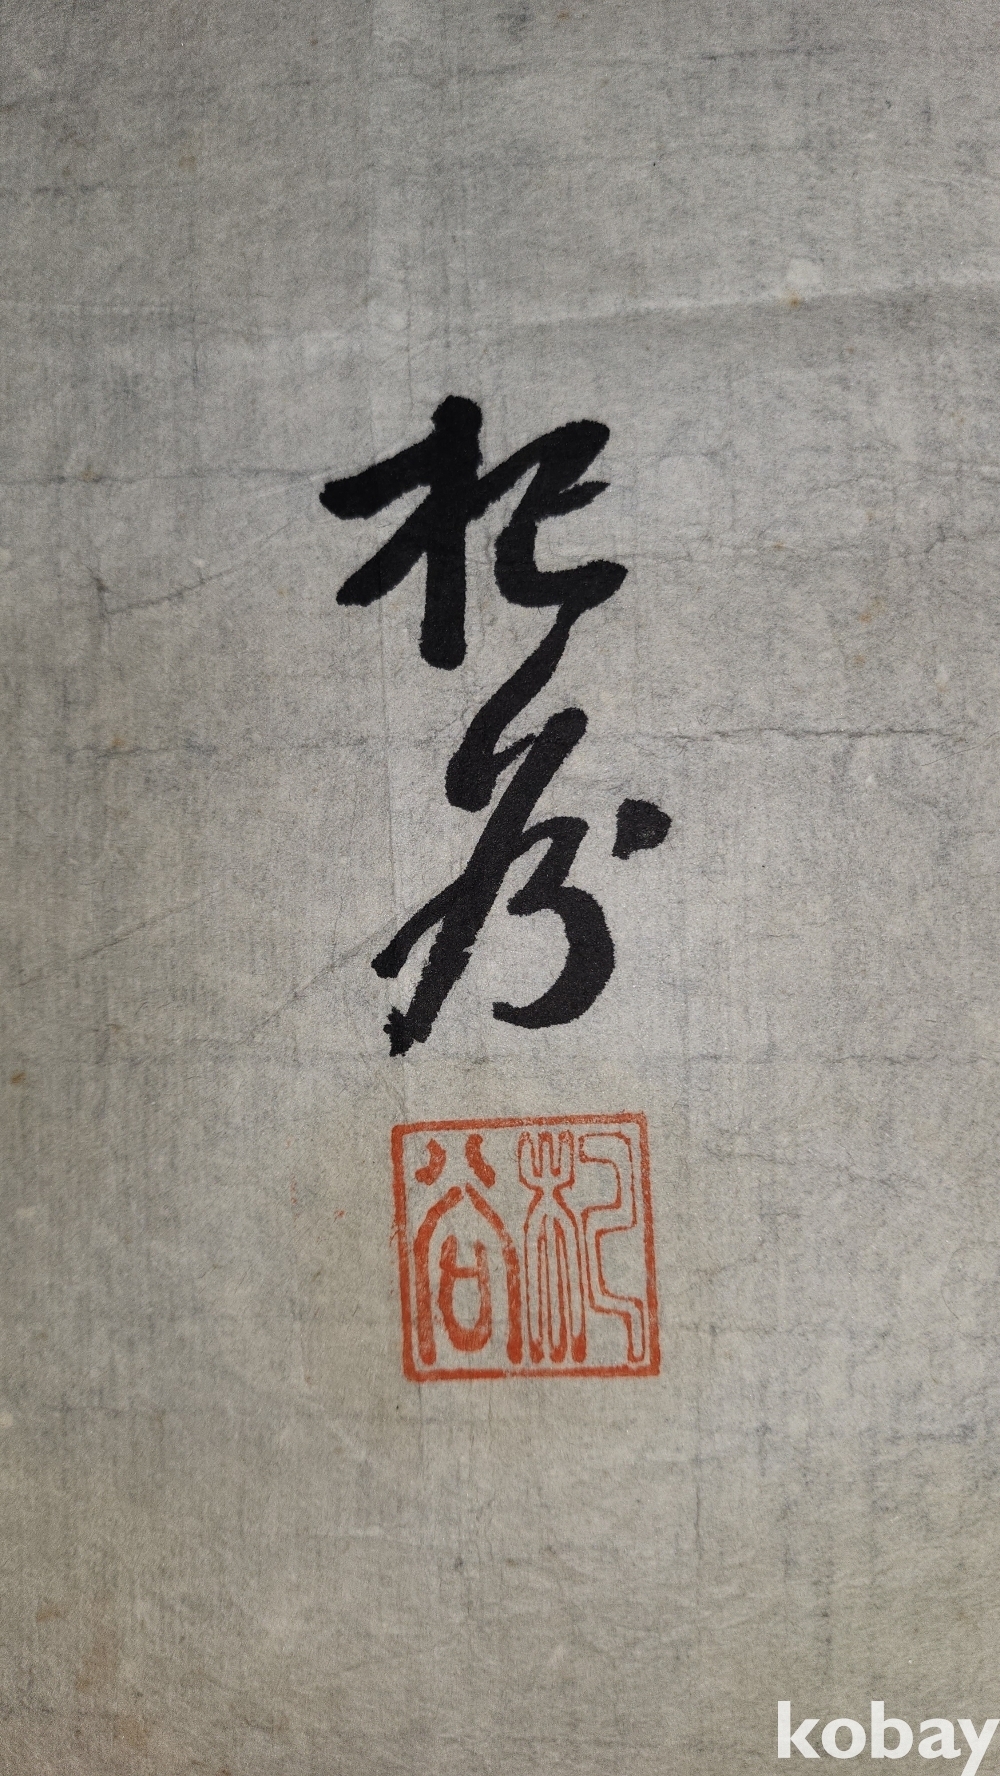 杞
杞谷
kobay